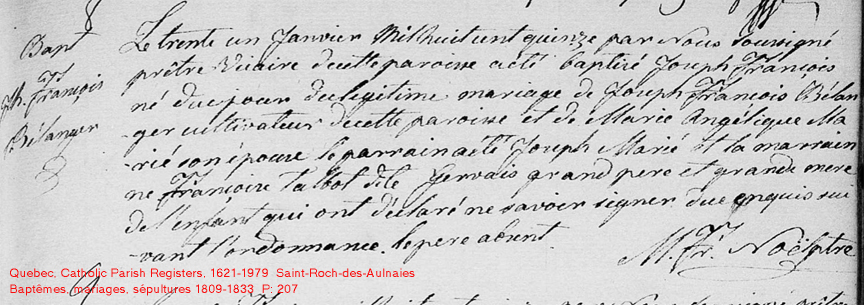 8
Bapt
Jh. Frs. François
Bélanger
Le trente un Janvier Mil huit cent quinze par Nous Soussigné
prêtre Vicaire decette paroisse a été baptisé Joseph François
né du jour du legitime mariage de Joseph François Bélan
ger cultivateur decette paroisse et de Marie Angélique Ma
rié son épouse le parrain a été Joseph Marié et la marrain
ne Françoise Talbot dite Gervais grand pere et grande mere
de l'enfant qui ont déclaré ne savoir signer due enquis sui
vant l'ordonnance. le pere absent.
M. Fr. Noël ptre
Quebec, Catholic Parish Registers, 1621-1979 Saint-Roch-des-Aulnaies
Baptêmes, mariages, sépultures 1809-1833 P: 207